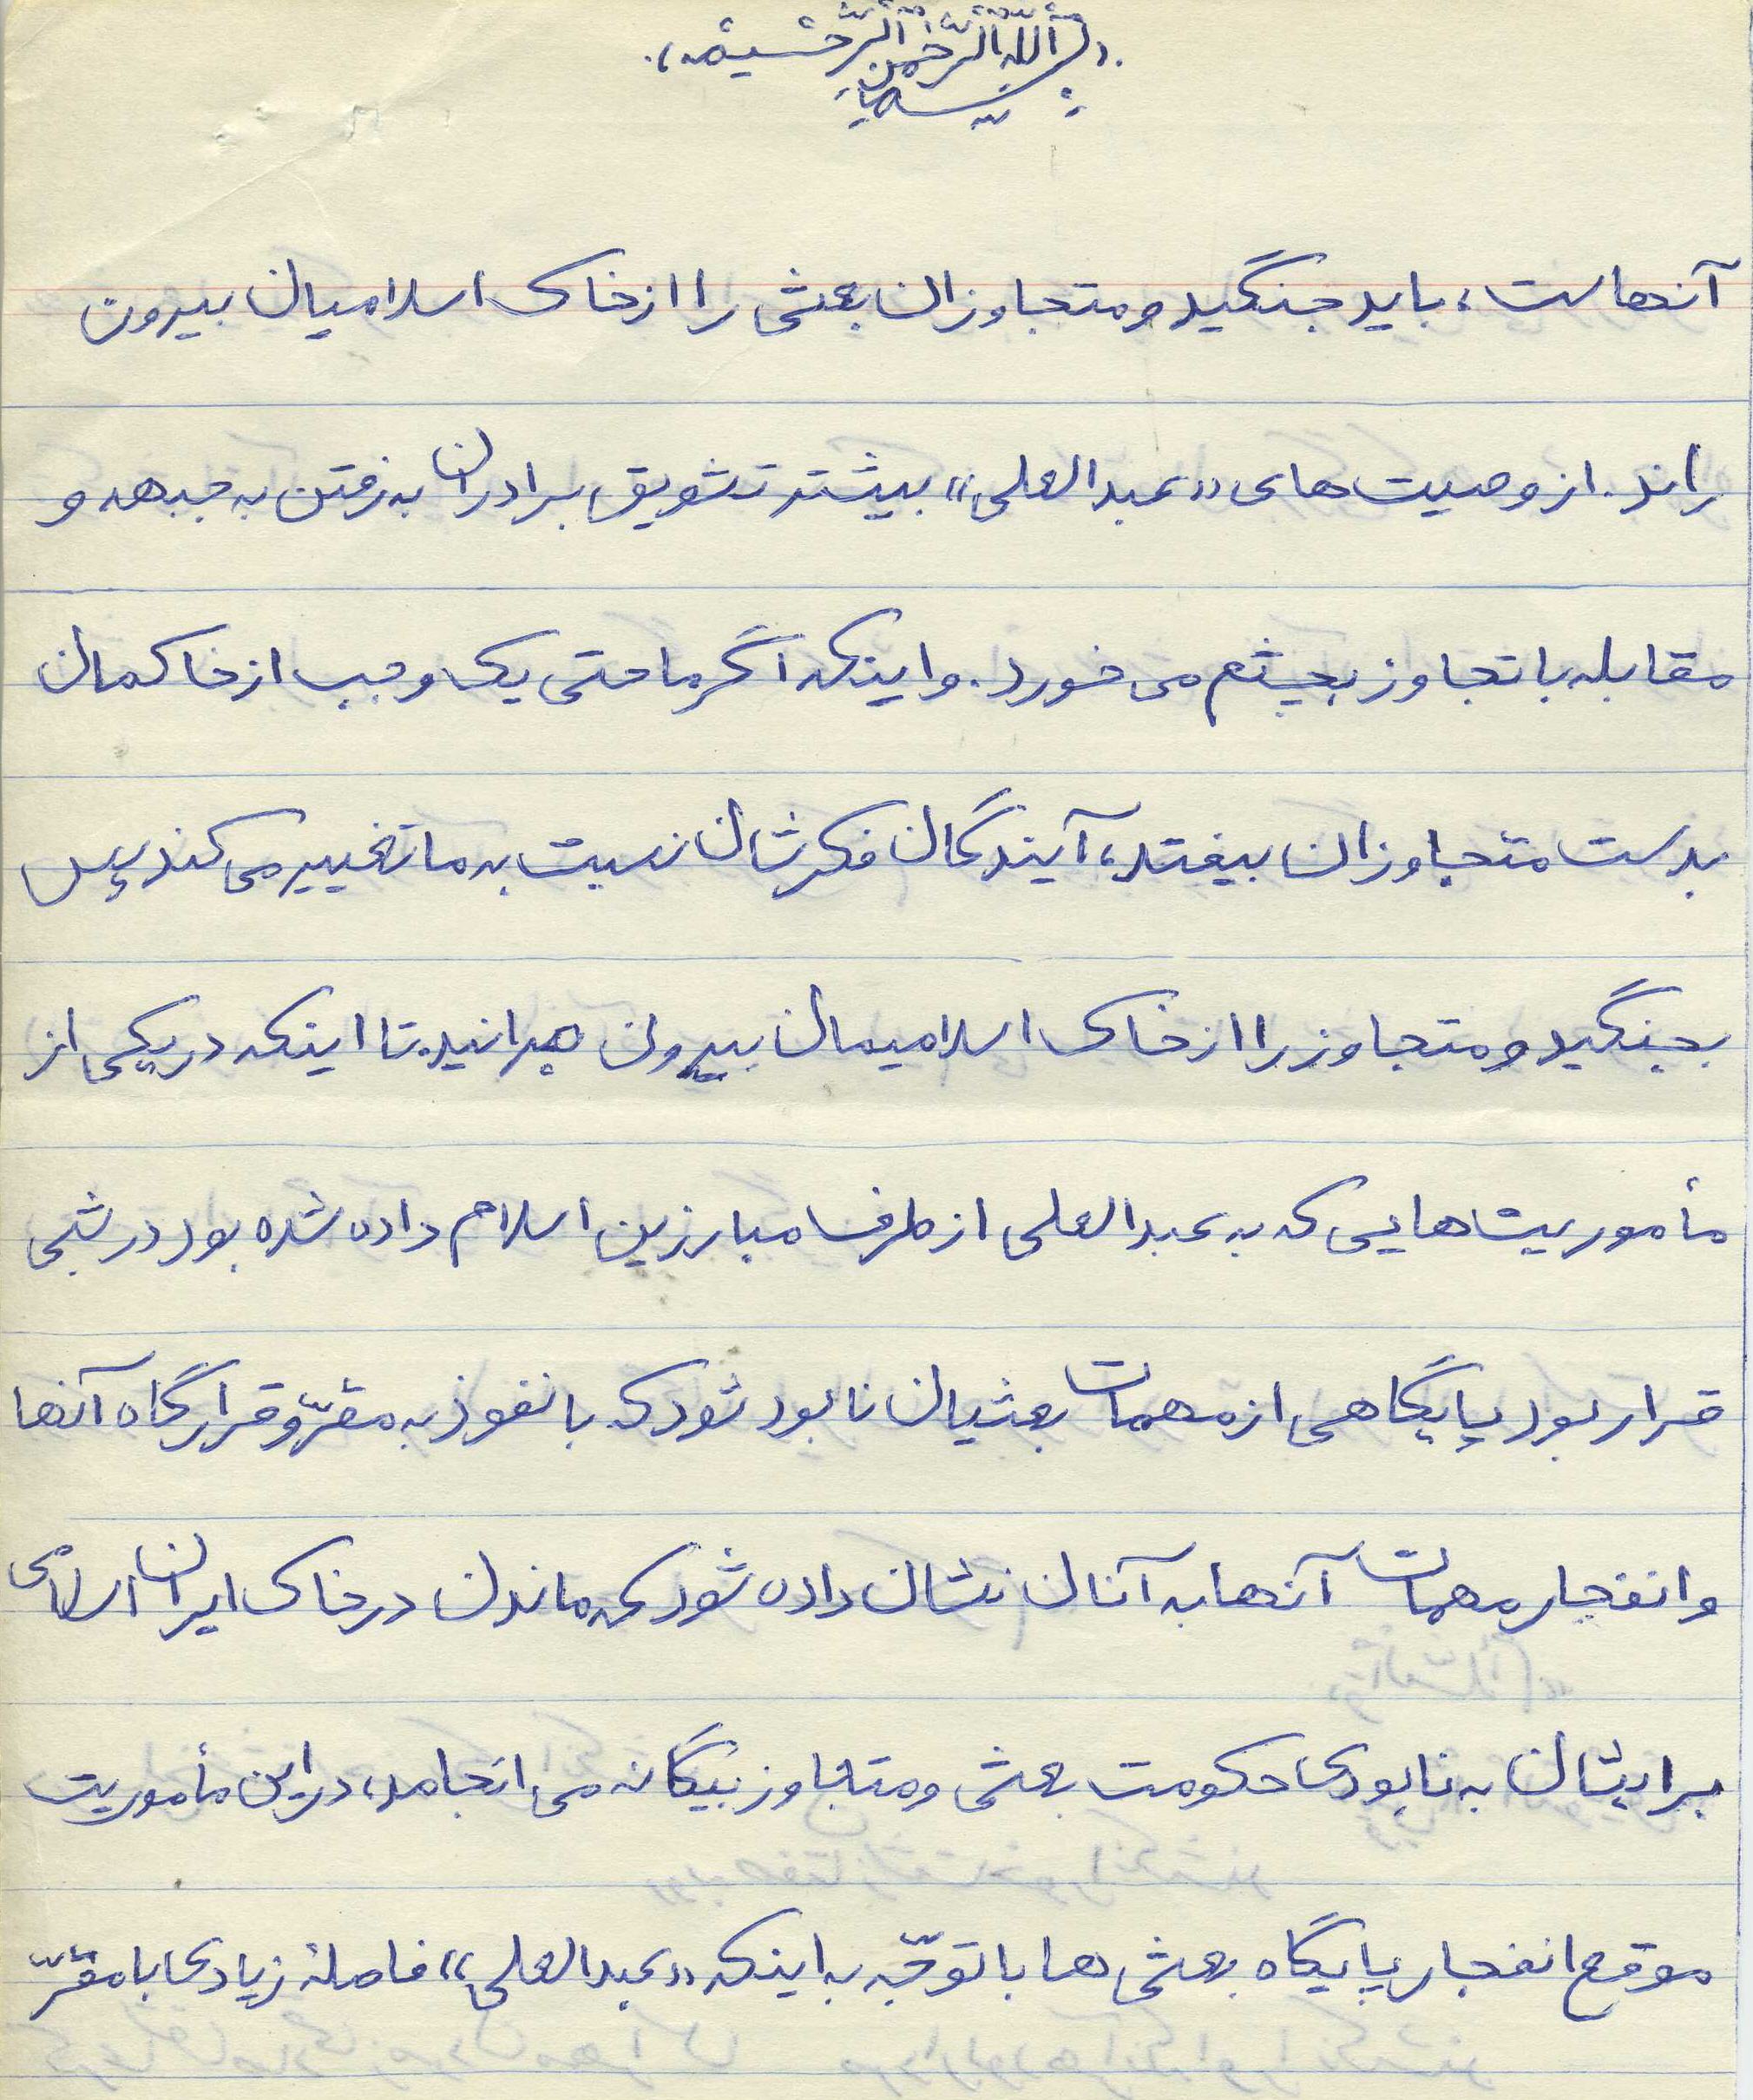 بسم الله الرّحمن الرّحیم
آنهاست، باید جنگید و متجاوزان بعثی را از خاک اسلامیان بیرون
راند. از وصیت‌های «عبدالعلی» بیشتر تشویق برادران به رفتن به جبهه و
مقابله با تجاوز بچشم می‌خورد. و اینکه اگر ما حتی یک وجب از خاکمان
بدست متجاوزان بیفتد، آیندگان فکرشان نسبت به ما تغییر می‌کند پس
بجنگید و متجاوز را از خاک اسلامیمان بیرون برانید. تا اینکه در یکی از
مأموریت‌هایی که به عبدالعلی از طرف مبارزین اسلام داده شده بود در شبی
قرار بود پایگاهی از مهمات بعثیان نابود شود که با نفوذ به مقرّ و قرارگاه آنها
و انفجار مهمات آنها به آنان نشان داده شود که ماندن در خاک ایران اسلامی
برایشان به نابودی حکومت بعثی و متجاوز بیگانه می‌انجامد، در این مأموریت
موقع انفجار پایگاه بعثی‌ها با توجّه به اینکه «عبدالعلی» فاصلهٔ زیادی با مقرّ